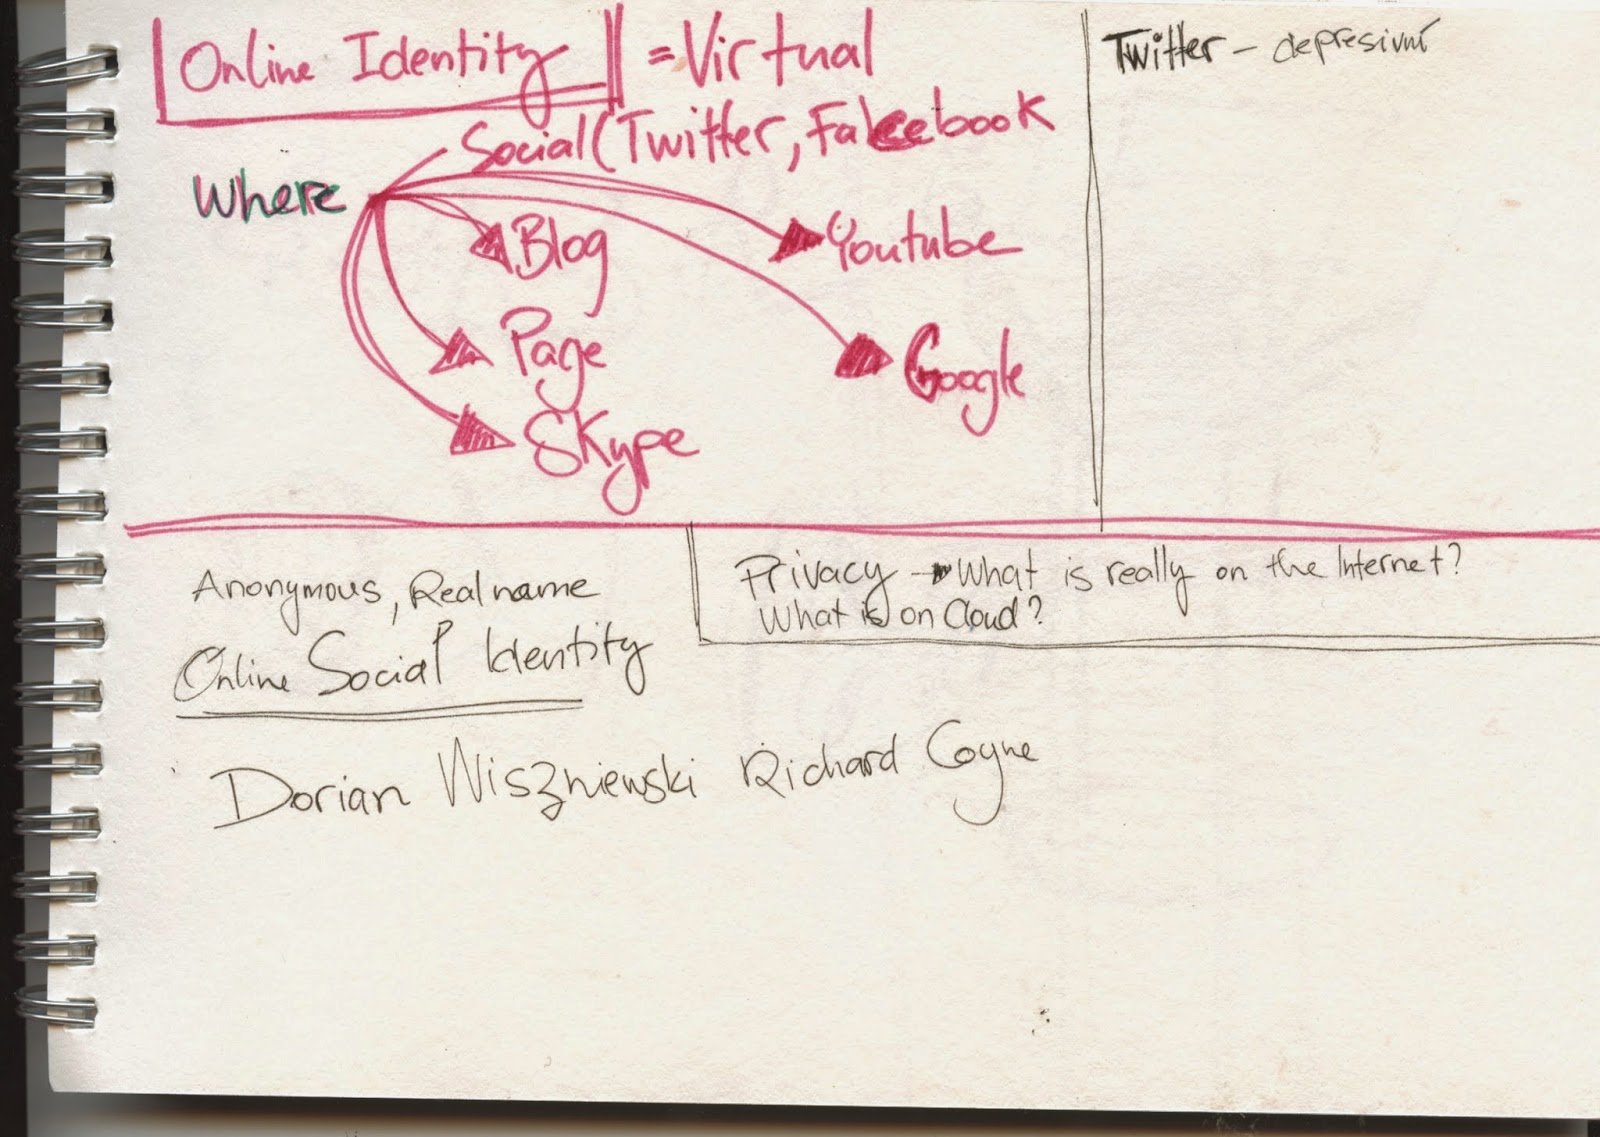 Online Identity = Virtual
Social (Twitter, Facebook
Where
Blog
Youtube
Page
Google
Skype
Twitter - depresivní
Anonymous, Real name
Online Social Identity
Privacy → What is really on the Internet?
What is on Cloud?
Dorian Wiszniewski Richard Coyne